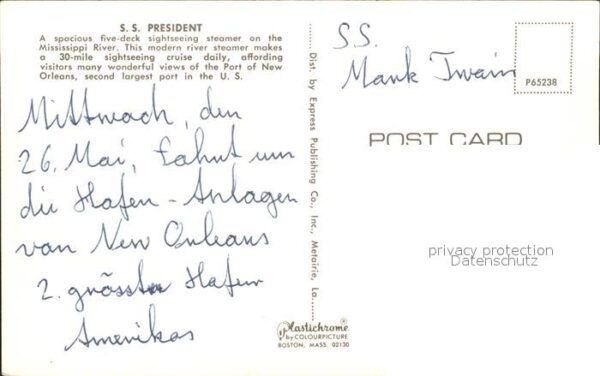 S. S. PRESIDENT
A spacious five-deck sightseeing steamer on the
Mississippi River. This modern river steamer makes
a 30-mile sightseeing cruise daily, affording
visitors many wonderful views of the Port of New
Orleans, second largest port in the U. S.
Mittwoch, den
26. Mai, Fahrt um
die Hafen-Anlagen
von New Orleans
2. grösster Hafen
Amerikas
Dist. by Express Publishing Co., Inc., Metairie, La.
Plastichrome®
by COLOURPICTURE
BOSTON, MASS. 02130
SS.
Mark Twain
P65238
POST CARD
privacy protection
Datenschutz